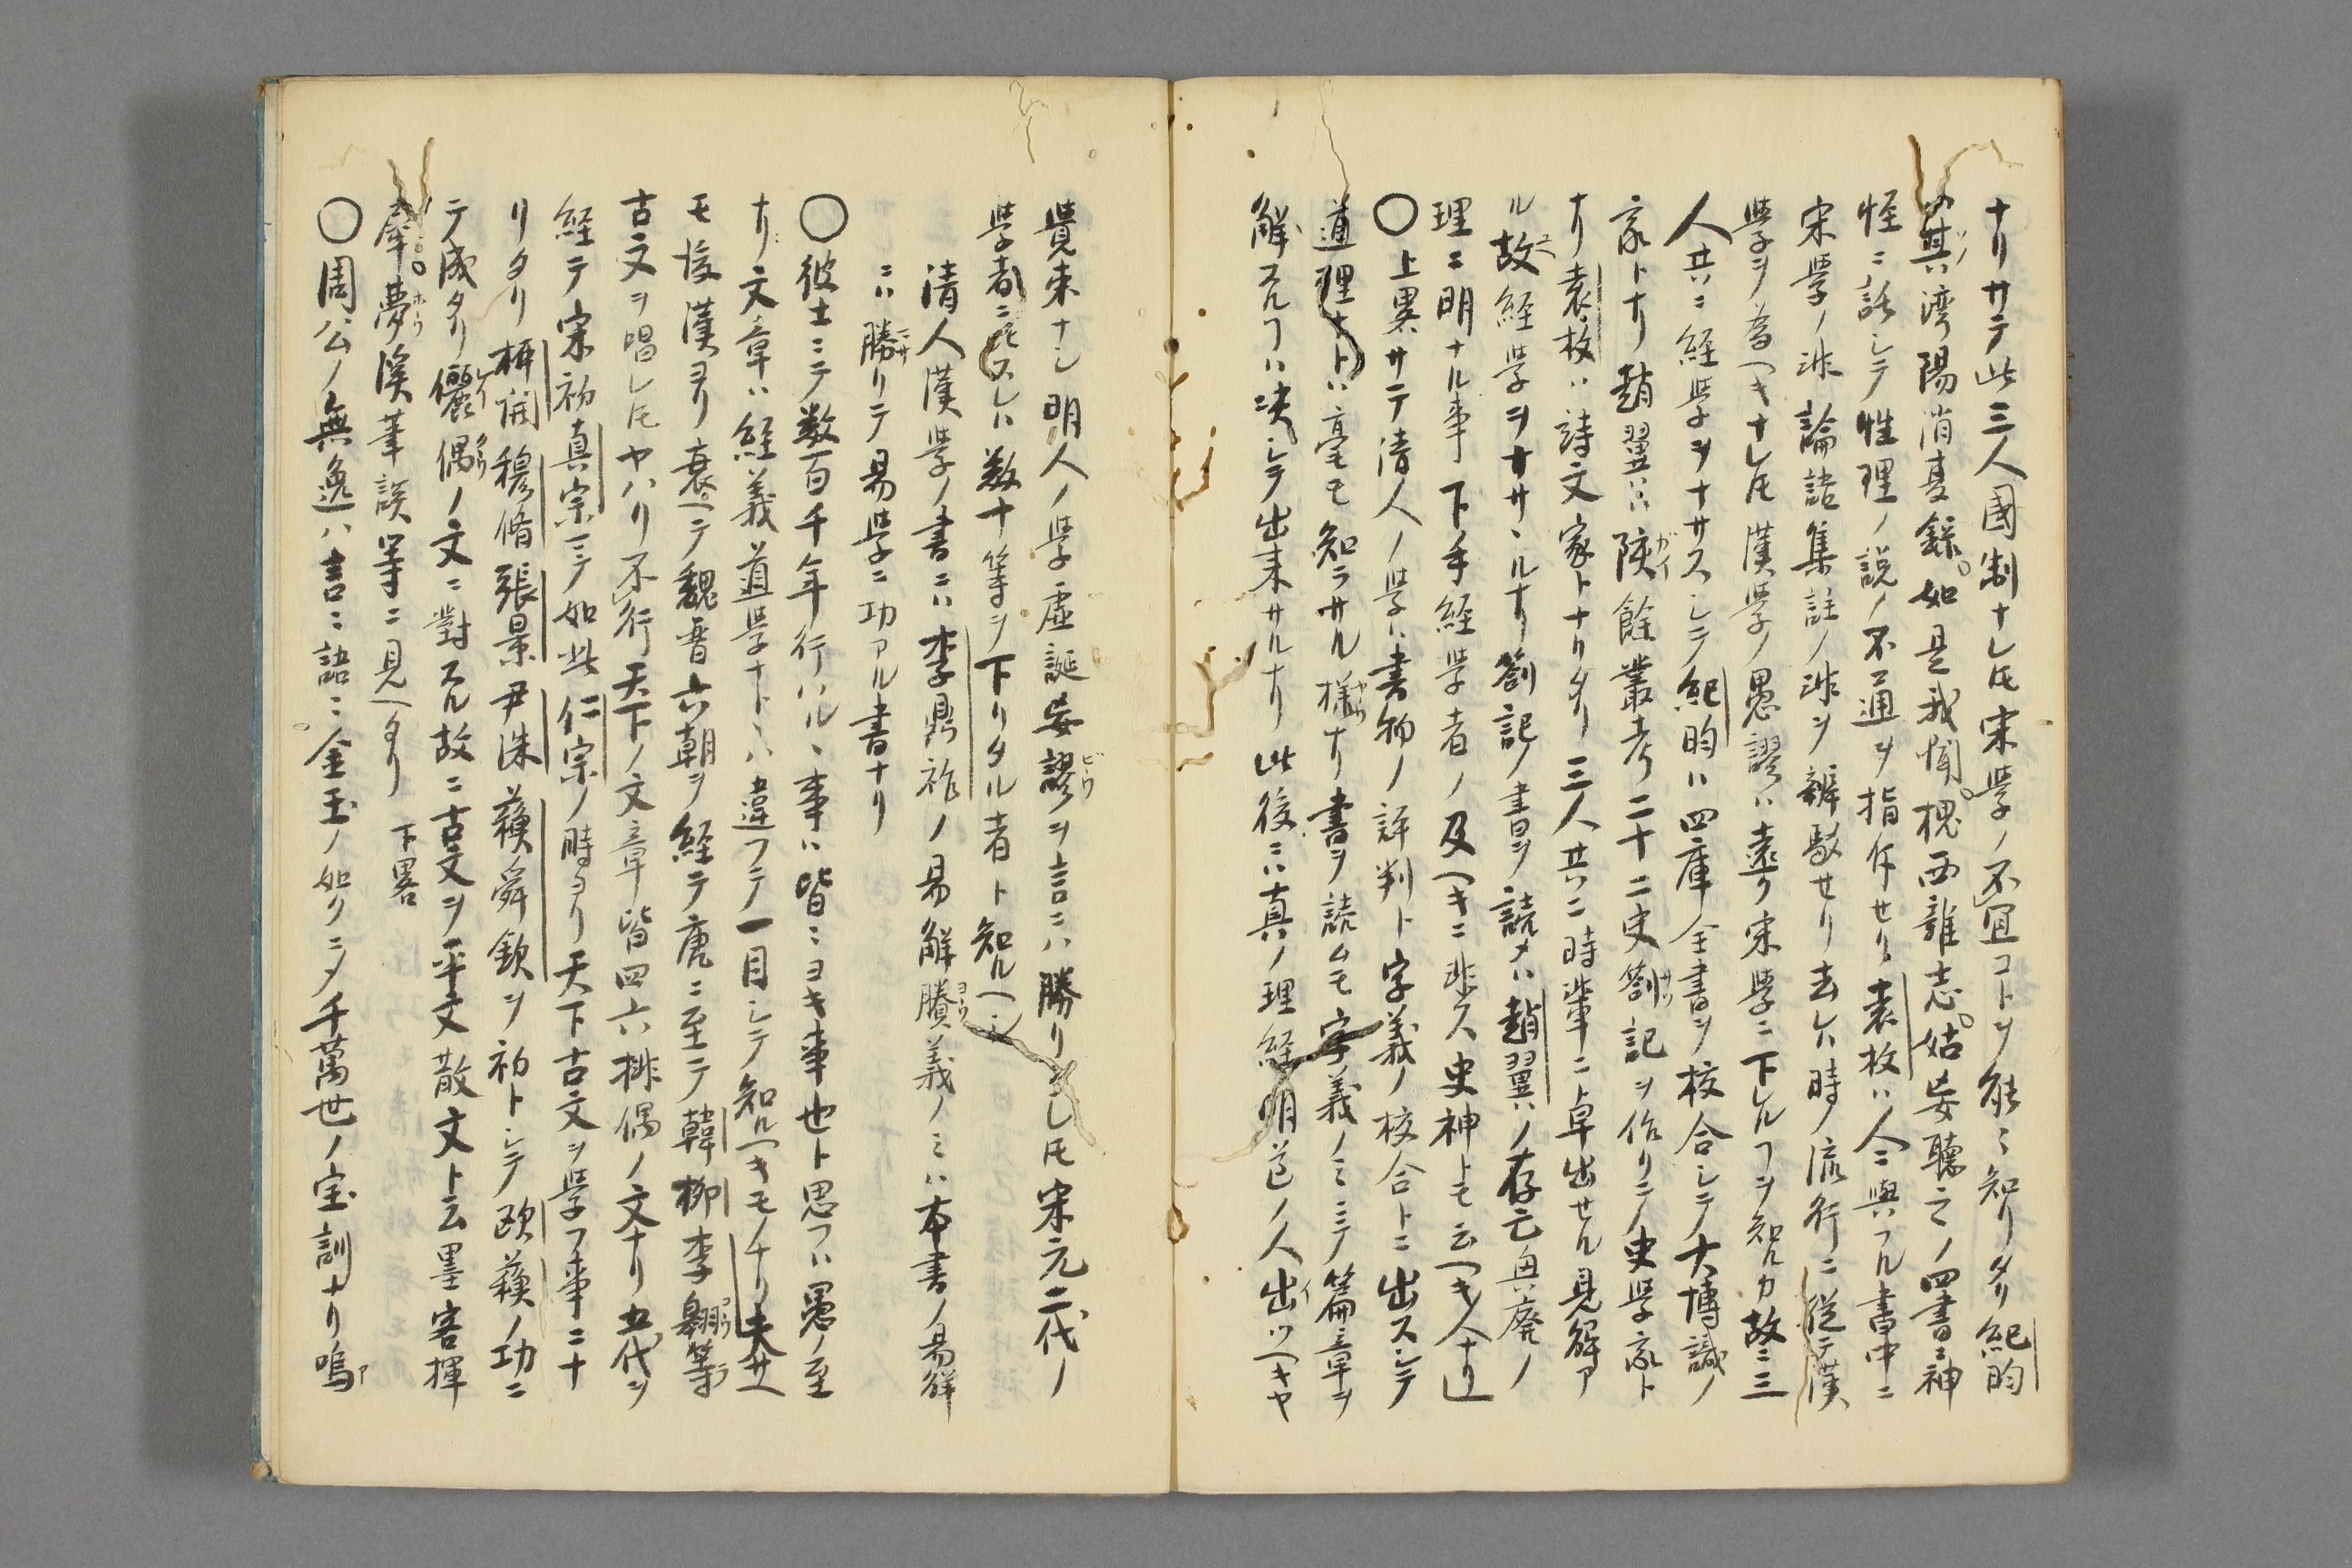 ナリサテ此三人國制ナレ𪜈宋學ノ不宜コトヲ能ミ知リタリ紀昀
ハ其灤陽消夏錄。如是我聞。槐西雜志。姑妄聽之ノ四書ニ神
怪ニ託シテ性理ノ説ノ不通ヲ指斥セリ袁枚ハ人ニ與フル書中ニ
宋學ノ非論語集註ノ非ヲ辨駁セリ去レハ時ノ流行ニ従テ漢
學ヲ為ヘキナレ𪜈漢學ノ愚謬ハ遠ク宋學ニ下レルヿヲ知ルカ故ニ三
人共ニ経學ヲナサスシテ紀昀ハ四庫全書ヲ校合シテ大博識ノ
家トナリ趙翼ハ陔餘叢考二十二史劄記ヲ作リテ史學家ト
ナリ袁枚ハ詩文家トナリタリ三人共ニ時輩ニ卓出セル見解ア
ル故経学ヲナサヽルナリ劄記ノ書ヲ読メハ趙翼ノ存亡興廃ノ
理ニ明ナル事下手経学者ノ及ヘキニ非ス史神トモ云ヘキ人ナリ
〇上畧サテ清人ノ学ハ書物ノ評判ト字義ノ校合トニ出スシテ
道理ナトハ毫モ知ラサル様ナリ書ヲ読ムモ字義ノミニテ篇章ヲ
解スルヿハ决シテ出来サルナリ此後ニハ真ノ理経明道ノ人出ツヘキヤ
覺束ナシ明人ノ學虚誕妄謬ヲ言ニハ勝リタレ𪜈宋元二代ノ
学者ニ比スレハ数十等ヲ下リタル者ト知ルヘシ
清人漢學ノ書ニハ李鼎祚ノ易解賸義ノミハ本書ノ易解
ニハ勝リテ易学ニ功アル書ナリ
〇彼土ニテ数百千年行ハルヽ事ハ皆ニヨキ事也ト思フハ愚ノ至
ナリ文章ハ経義道学ナトヽハ違フテ一目シテ知ルヘキモノナリ夫サヘ
モ後漢ヨリ衰ヘテ魏晋六朝ヲ経テ唐ニ至テ韓柳李翺等
古文ヲ唱レ𪜈ヤハリ不行天下ノ文章皆四六排偶ノ文ナリ五代ヲ
経テ宋初真宗ニテ如此仁宗ノ時ヨリ天下古文ヲ學フ事ニナ
リタリ柳開穆脩張景尹洙蘇舜欽ヲ初トシテ欧蘇ノ功ニ
テ成タリ儷偶ノ文ニ對スル故ニ古文ヲ平文散文ト云墨客揮
犀。夢渓筆談等ニ見ヘタリ　下畧
〇周公ノ無逸ハ言ニ語ニ金玉ノ如クニメ千萬世ノ宝訓ナリ嗚